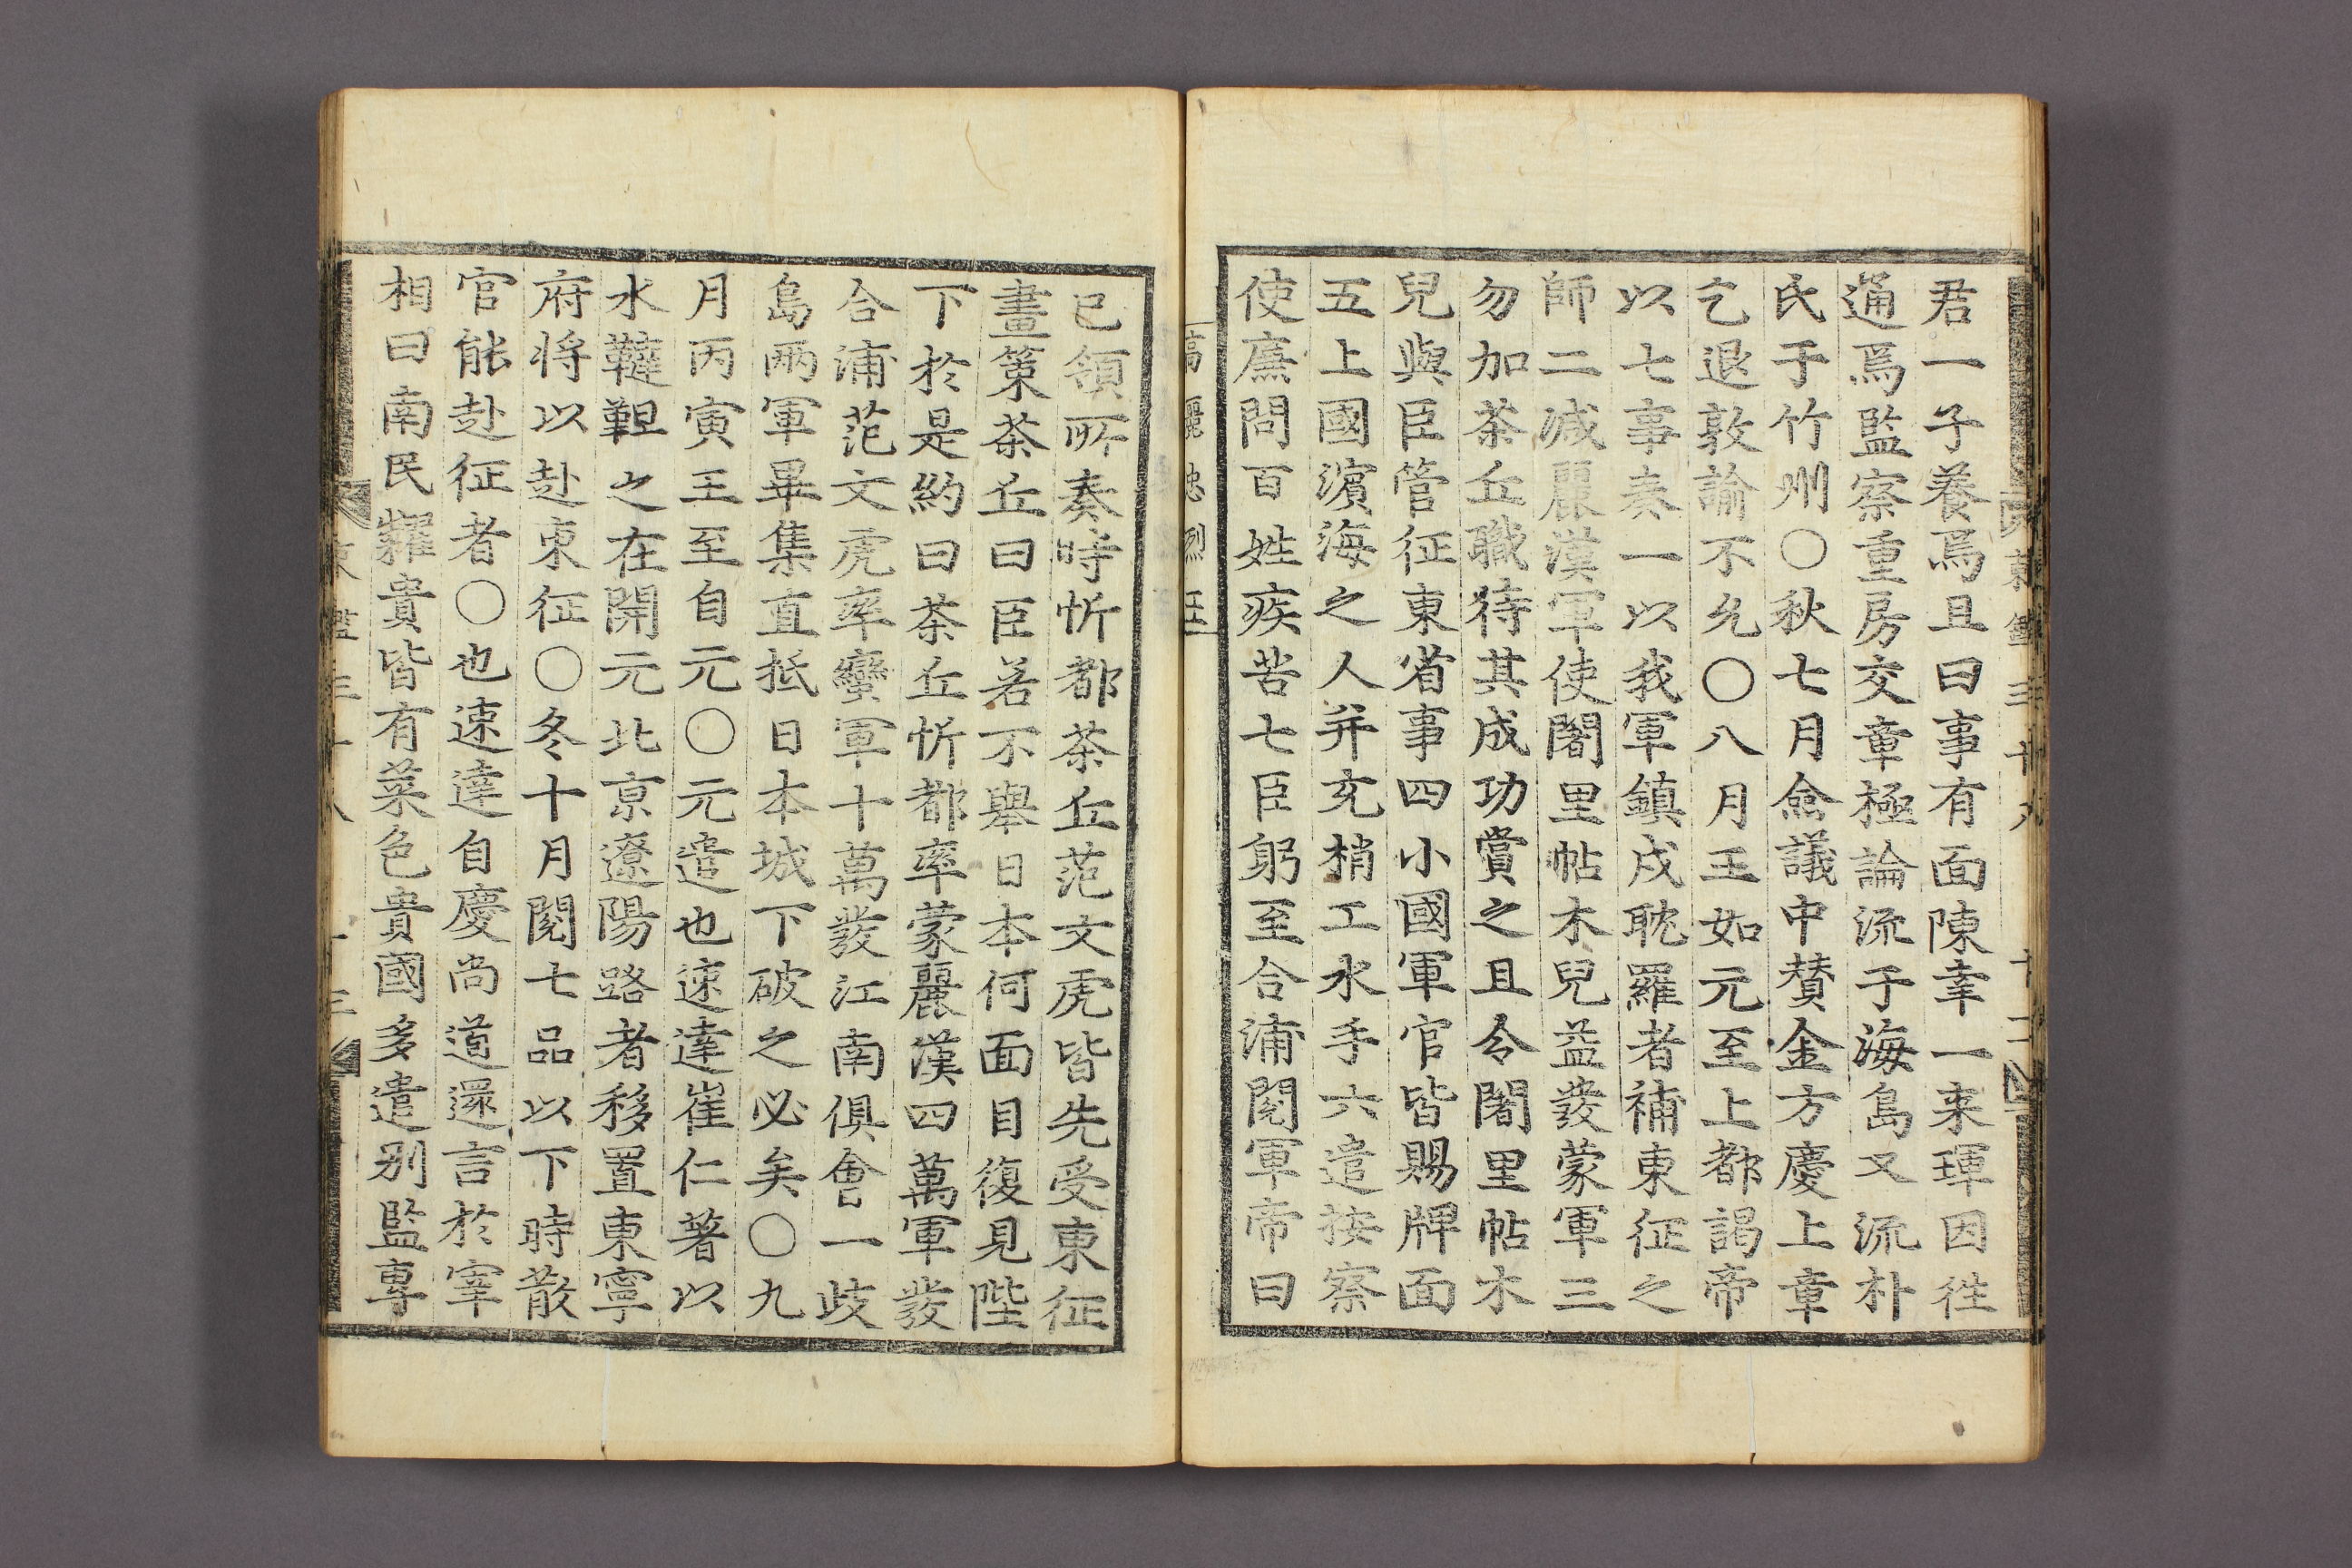 君一子養焉且曰事有面陳幸一来琿因徃
通焉監察重房交章極論流于海島又流朴
氏于竹州○秋七月僉議中賛金方慶上章
乞退敦諭不允○八月王如元至上都謁帝
以七事奏一以我軍鎮戍耽羅者補東征之
師二减麗漢軍使闍里帖木兒益發蒙軍三
勿加茶丘職待其成功賞之且令闍里帖木
兒與臣管征東省事四小國軍官皆賜牌面
五上國濵海之人并充梢工水手六遣按察
使廉問百姓疾苦七臣躬至合浦閱軍帝曰
高麗忠烈王
已領所奏時忻都茶丘范文虎皆先受東征
畫策茶丘曰臣若不舉日本何面目復見陛
下於是約曰茶丘忻都率蒙麗漢四萬軍發
合浦范文虎率蠻軍十萬發江南俱會一歧
島兩軍畢集直抵日本城下破之必矣○九
月丙寅王至自元○元遣也速達崔仁著以
水韃靼之在開元北京遼陽路者移置東寧
府将以赴東征○冬十月閱七品以下時散
官能赴征者○也速達自慶尚道還言於宰
相曰南民糶貴皆有菜色貴國多遣别監專